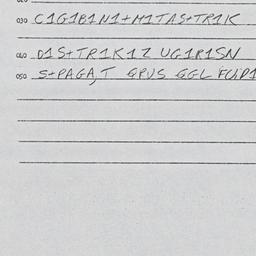 030 C1G1B1N1+M1TAS+TR1K
040 D1S+TR1K1Z UG1R1SN
050 S+PAGA,T GPUS GGL